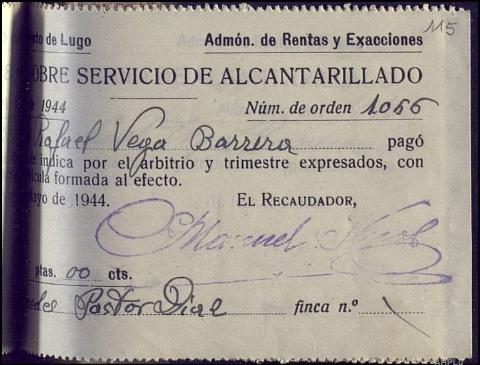 115
cto de Lugo Admón. de Rentas y Exacciones
OBRE SERVICIO DE ALCANTARILLADO
de 1944 Núm. de orden 1066
Rafael Vega Barrera pagó
e indica por el arbitrio y trimestre expresados, con
ícula formada al efecto.
Mayo de 1944. EL RECAUDADOR,
Manuel
ptas. 00 cts.
Pastor Díaz finca n.º